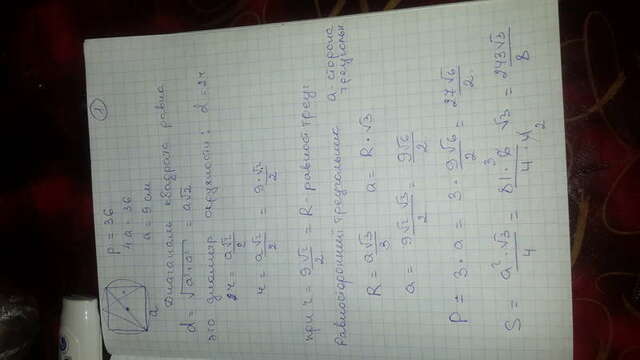 ①
P = 36
4a = 36
a = 9 см
a
Диагональ квадрата равна
d = √(a²+a²) = a√2
это диаметр окружности: d = 2r
2r = a√2
r = a√2/2 = 9·√2/2
при r = 9√2/2 = R - равност. треуг.
равносторонний треугольник a - сторона треугольн
R = a√3/3 a = R·√3
a = 9√2 √3/2 = 9√6/2
P = 3·a = 3·9√6/2 = 27√6/2
S = a²·√3/4 = 81·6 √3/4·4 = 243√3/8
3
2